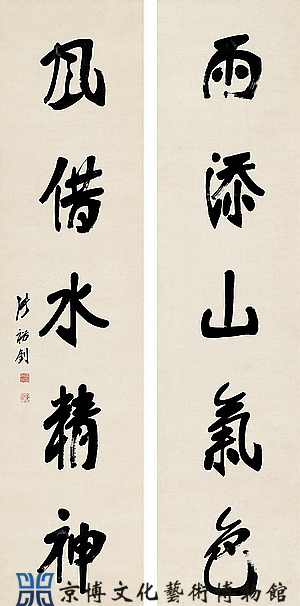 雨添山氣色
風借水精神
張裕釗
京博文化藝術博物館